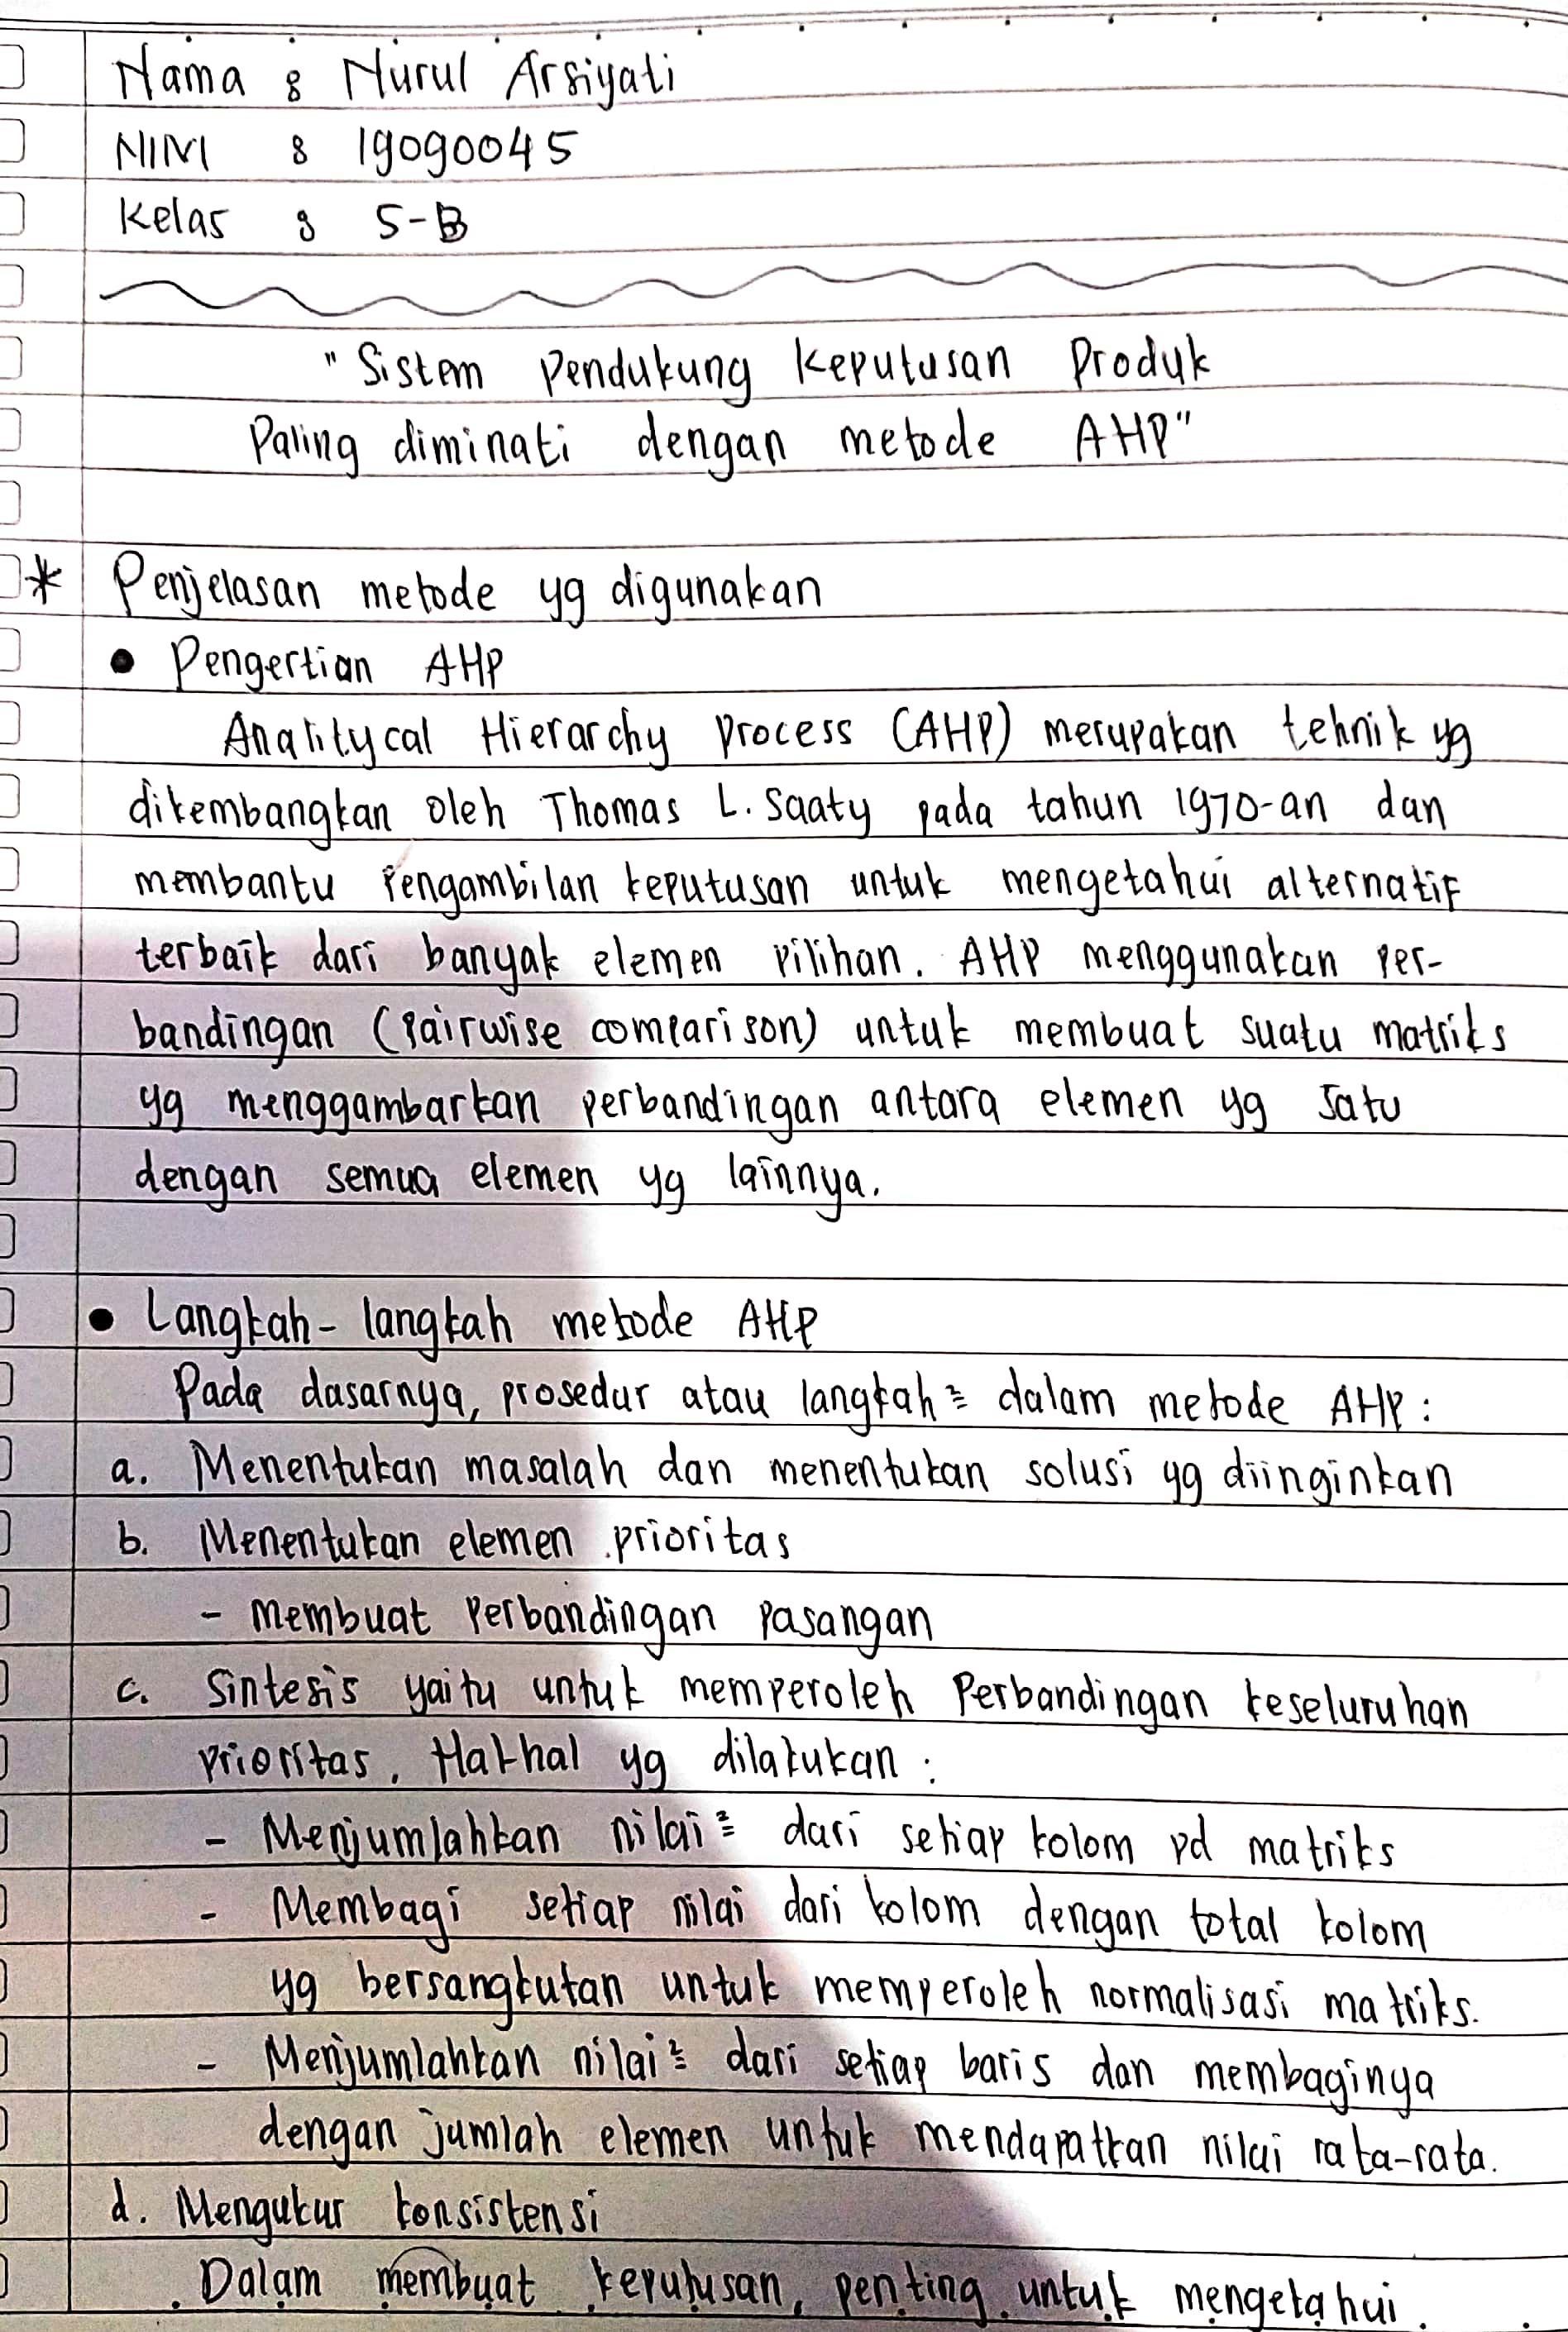 Nama : Nurul Arsiyati
NIM : 19090045
Kelas : 5-B
"Sistem Pendukung Keputusan Produk
Paling diminati dengan metode AHP"
* Penjelasan metode yg digunakan
• Pengertian AHP
Analitycal Hierarchy Process (AHP) merupakan tehnik yg
dikembangkan oleh Thomas L. Saaty pada tahun 1970-an dan
membantu Pengambilan keputusan untuk mengetahui alternatif
terbaik dari banyak elemen pilihan. AHP menggunakan per-
bandingan (Pairwise comparison) untuk membuat suatu matriks
yg menggambarkan perbandingan antara elemen yg satu
dengan semua elemen yg lainnya.
• Langkah-langkah metode AHP
Pada dasarnya, prosedur atau langkah² dalam metode AHP :
a. Menentukan masalah dan menentukan solusi yg diinginkan
b. Menentukan elemen prioritas
- Membuat Perbandingan pasangan
c. Sintesis yaitu untuk memperoleh Perbandingan keseluruhan
prioritas. Hal-hal yg dilakukan :
- Menjumlahkan nilai² dari setiap kolom pd matriks
- Membagi setiap nilai dari kolom dengan total kolom
yg bersangkutan untuk memperoleh normalisasi matriks.
- Menjumlahkan nilai² dari setiap baris dan membaginya
dengan jumlah elemen untuk mendapatkan nilai rata-rata.
d. Mengukur konsistensi
Dalam membuat keputusan, penting untuk mengetahui